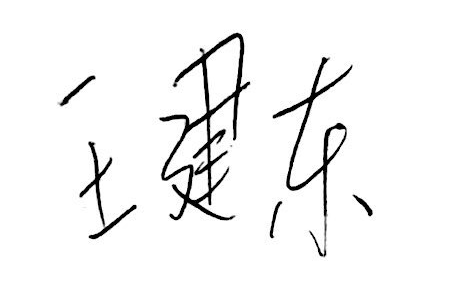 王建东